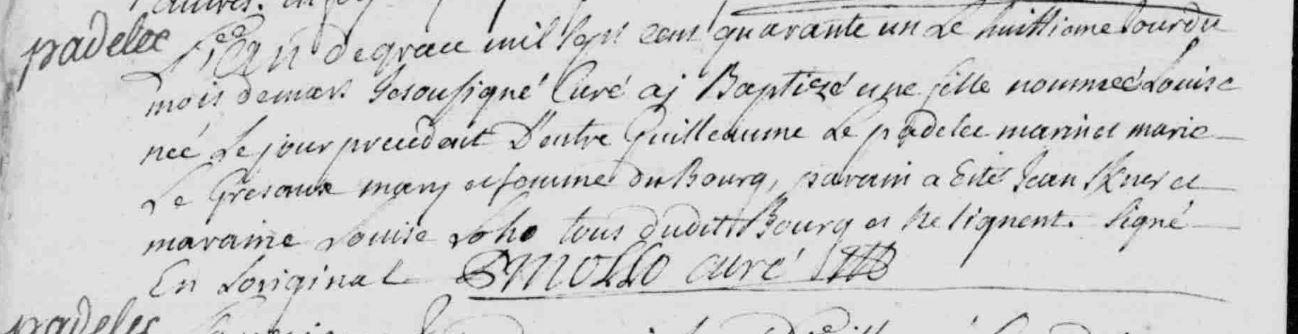 padelec
L'an de grace mil sept cent quarante un Le huittiame Jour du
mois de mars Je sousigné Curé aj Baptizé une fille nommeé Louise
neé Le jour precedent D'entre Guilleaume Le padelec marin et marie
Le Gresaux mary et femme du Bourg, parain a Eité Jean et
maraine Louise Loho tous dudit Bourg et ne signent. signé
En Loriginal MOLLO curé
padelec